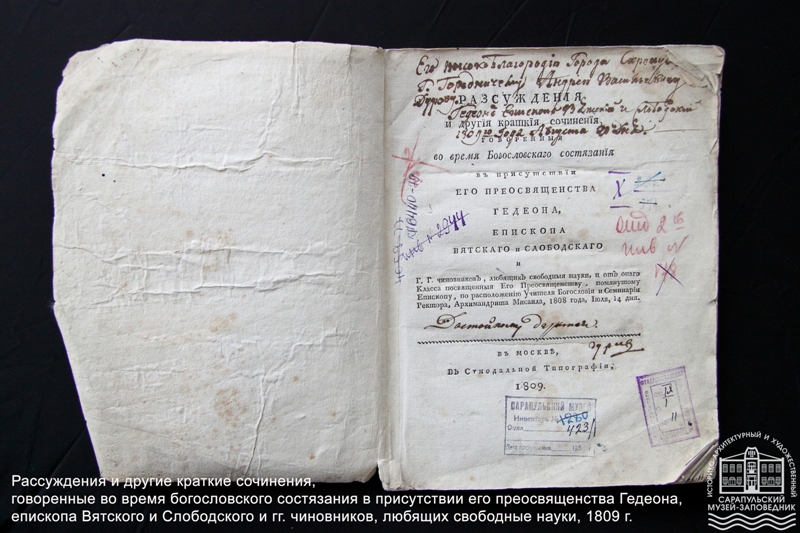 Его высокоблагородію Города Сарапула
Г. Городничему Андрею Васильевичу
РАЗСУЖДЕНІЯ
Гедеонъ Епископъ Вятскій и Слободскій
и другія краткія сочиненія,
1809 года Августа дня.
ГОВОРЕННЫЯ
во время Богословскаго состязанія
въ присутствіи
ЕГО ПРЕОСВЯЩЕНСТВА
ГЕДЕОНА,
ЕПИСКОПА
ВЯТСКАГО и СЛОБОДСКАГО
и
Г. Г. чиновниковъ, любящихъ свободныя науки, и отъ онаго
Класса посвященныя Его Преосвященству, помянутому
Епископу, по расположенію Учителя Богословіи и Семинаріи
Ректора, Архимандрита Мисаила, 1808 года, Іюля, 14 дня.
ВЪ МОСКВѢ,
Въ Сѵнодальной Типографіи,
1809.
инв № 2944
X
Отд 2
инв №
САРАПУЛЬСКИЙ МУЗЕЙ
1280
423/1
Рассуждения и другие краткие сочинения,
говоренные во время богословского состязания в присутствии его преосвященства Гедеона,
епископа Вятского и Слободского и гг. чиновников, любящих свободные науки, 1809 г.
ИСТОРИКО-АРХИТЕКТУРНЫЙ И ХУДОЖЕСТВЕННЫЙ
САРАПУЛЬСКИЙ
МУЗЕЙ-ЗАПОВЕДНИК